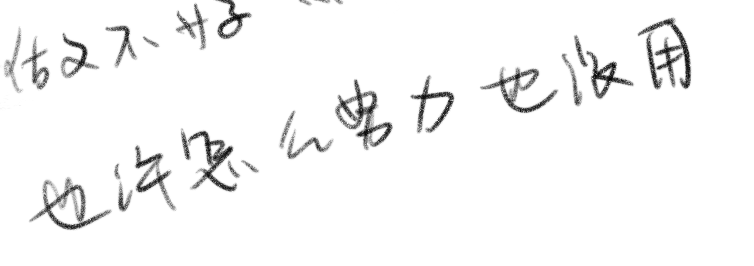 做不好
也许怎么努力也没用